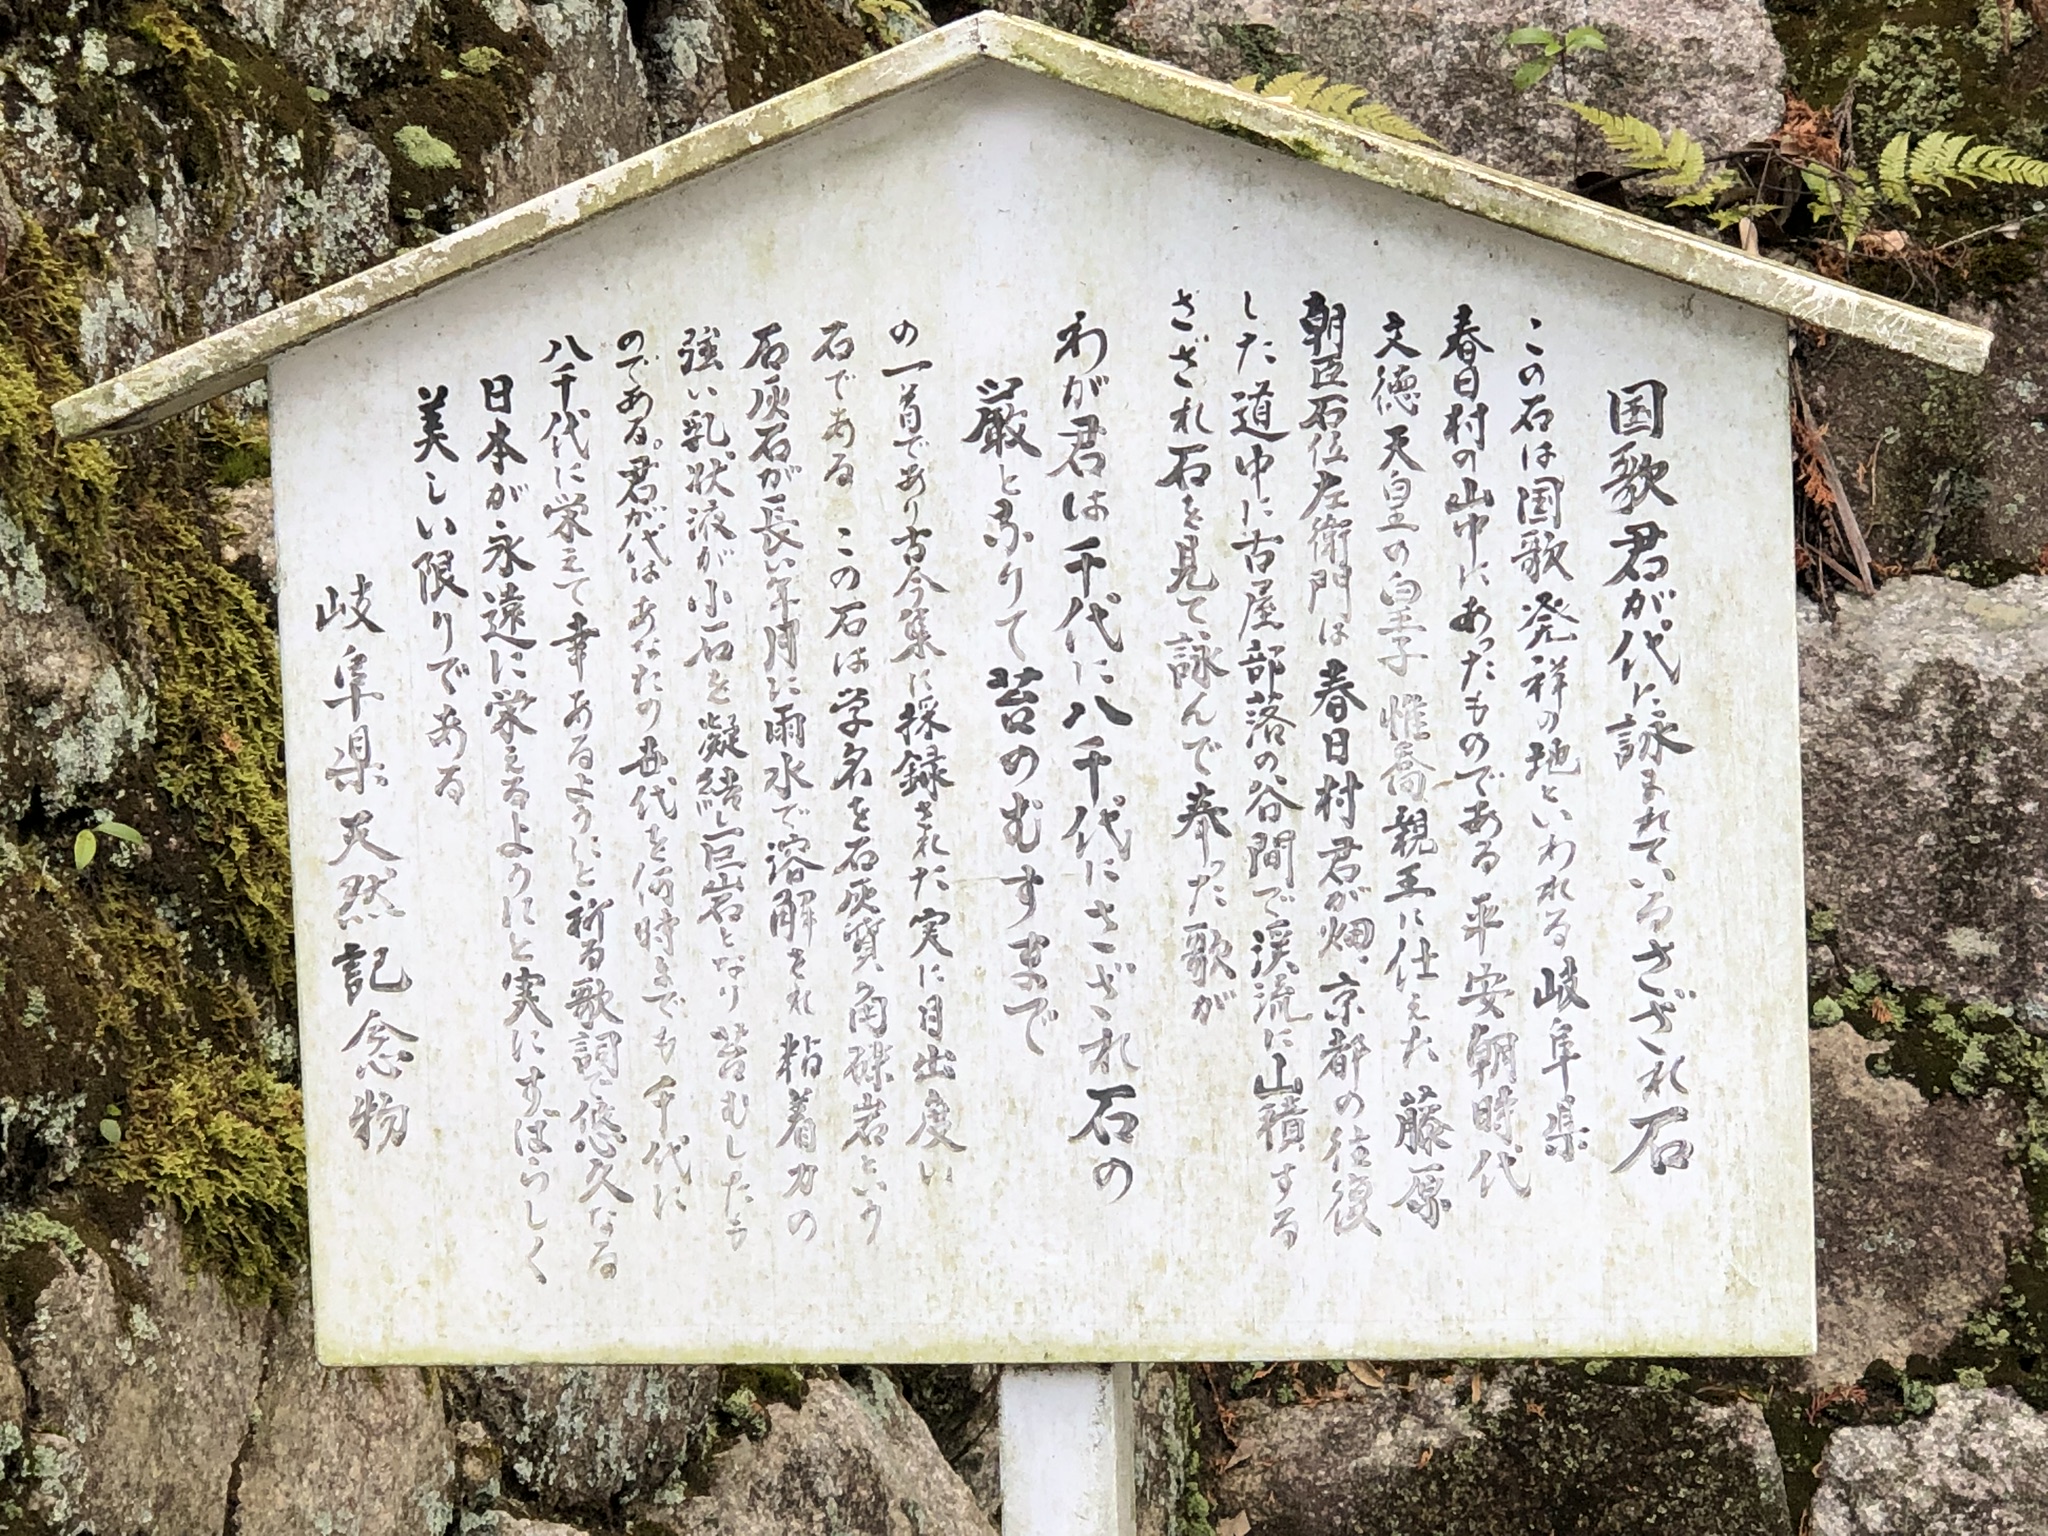 国歌君が代に詠まれているさざれ石
この石は国歌発祥の地といわれる岐阜県
春日村の山中にあったものである 平安朝時代
文徳天皇の皇子 惟喬親王に仕えた 藤原
朝臣石位左衛門は 春日村 君が畑、京都の往復
した道中に古屋部落の谷間で渓流に山積する
さざれ石を見て詠んで奉った歌が
わが君は千代に八千代にさざれ石の
巌となりて苔のむすまで
の一首であり古今集に採録された実に目出度い
石である この石は学名を石灰質角礫岩という
石灰石が長い年月に雨水で溶解され 粘着力の
強い乳状液が小石を凝結し巨岩となり苔むしたう
のである。君が代はあなたの世代を何時までも千代に
八千代に栄えて幸あるようにと祈る歌詞で悠久なる
日本が永遠に栄えるようにと実にすばらしく
美しい限りである
岐阜県天然記念物